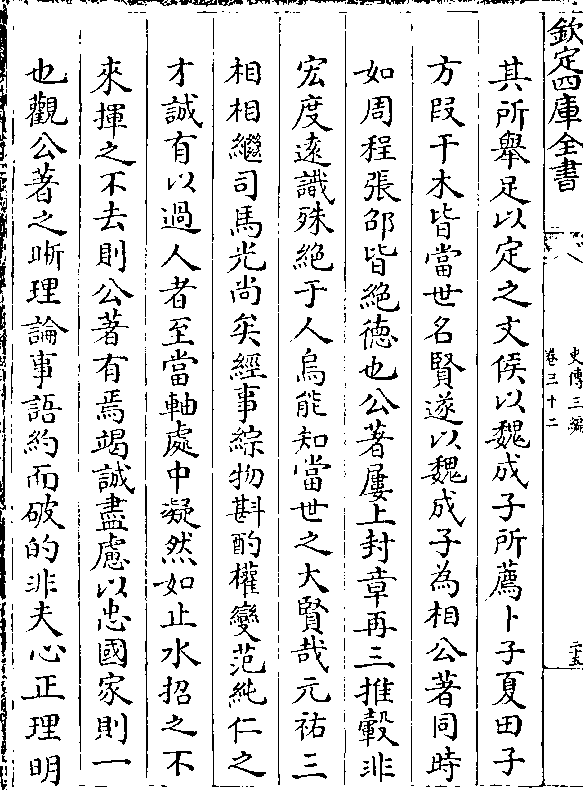 欽定四庫全書
史傳三編
卷三十二
二十五
其所舉足以定之文侯以魏成子所薦卜子夏田子
方段干木皆當世名賢遂以魏成子為相公著同時
如周程張邵皆絶德也公著屢上封章再三推轂非
宏度逺識殊絶于人烏能知當世之大賢哉元祐三
相相繼司馬光尚矣經事綜物斟酌權變范純仁之
才誠有以過人者至當軸處中凝然如止水招之不
來揮之不去則公著有焉竭誠盡慮以忠國家則一
也觀公著之晰理論事語約而破的非夫心正理明